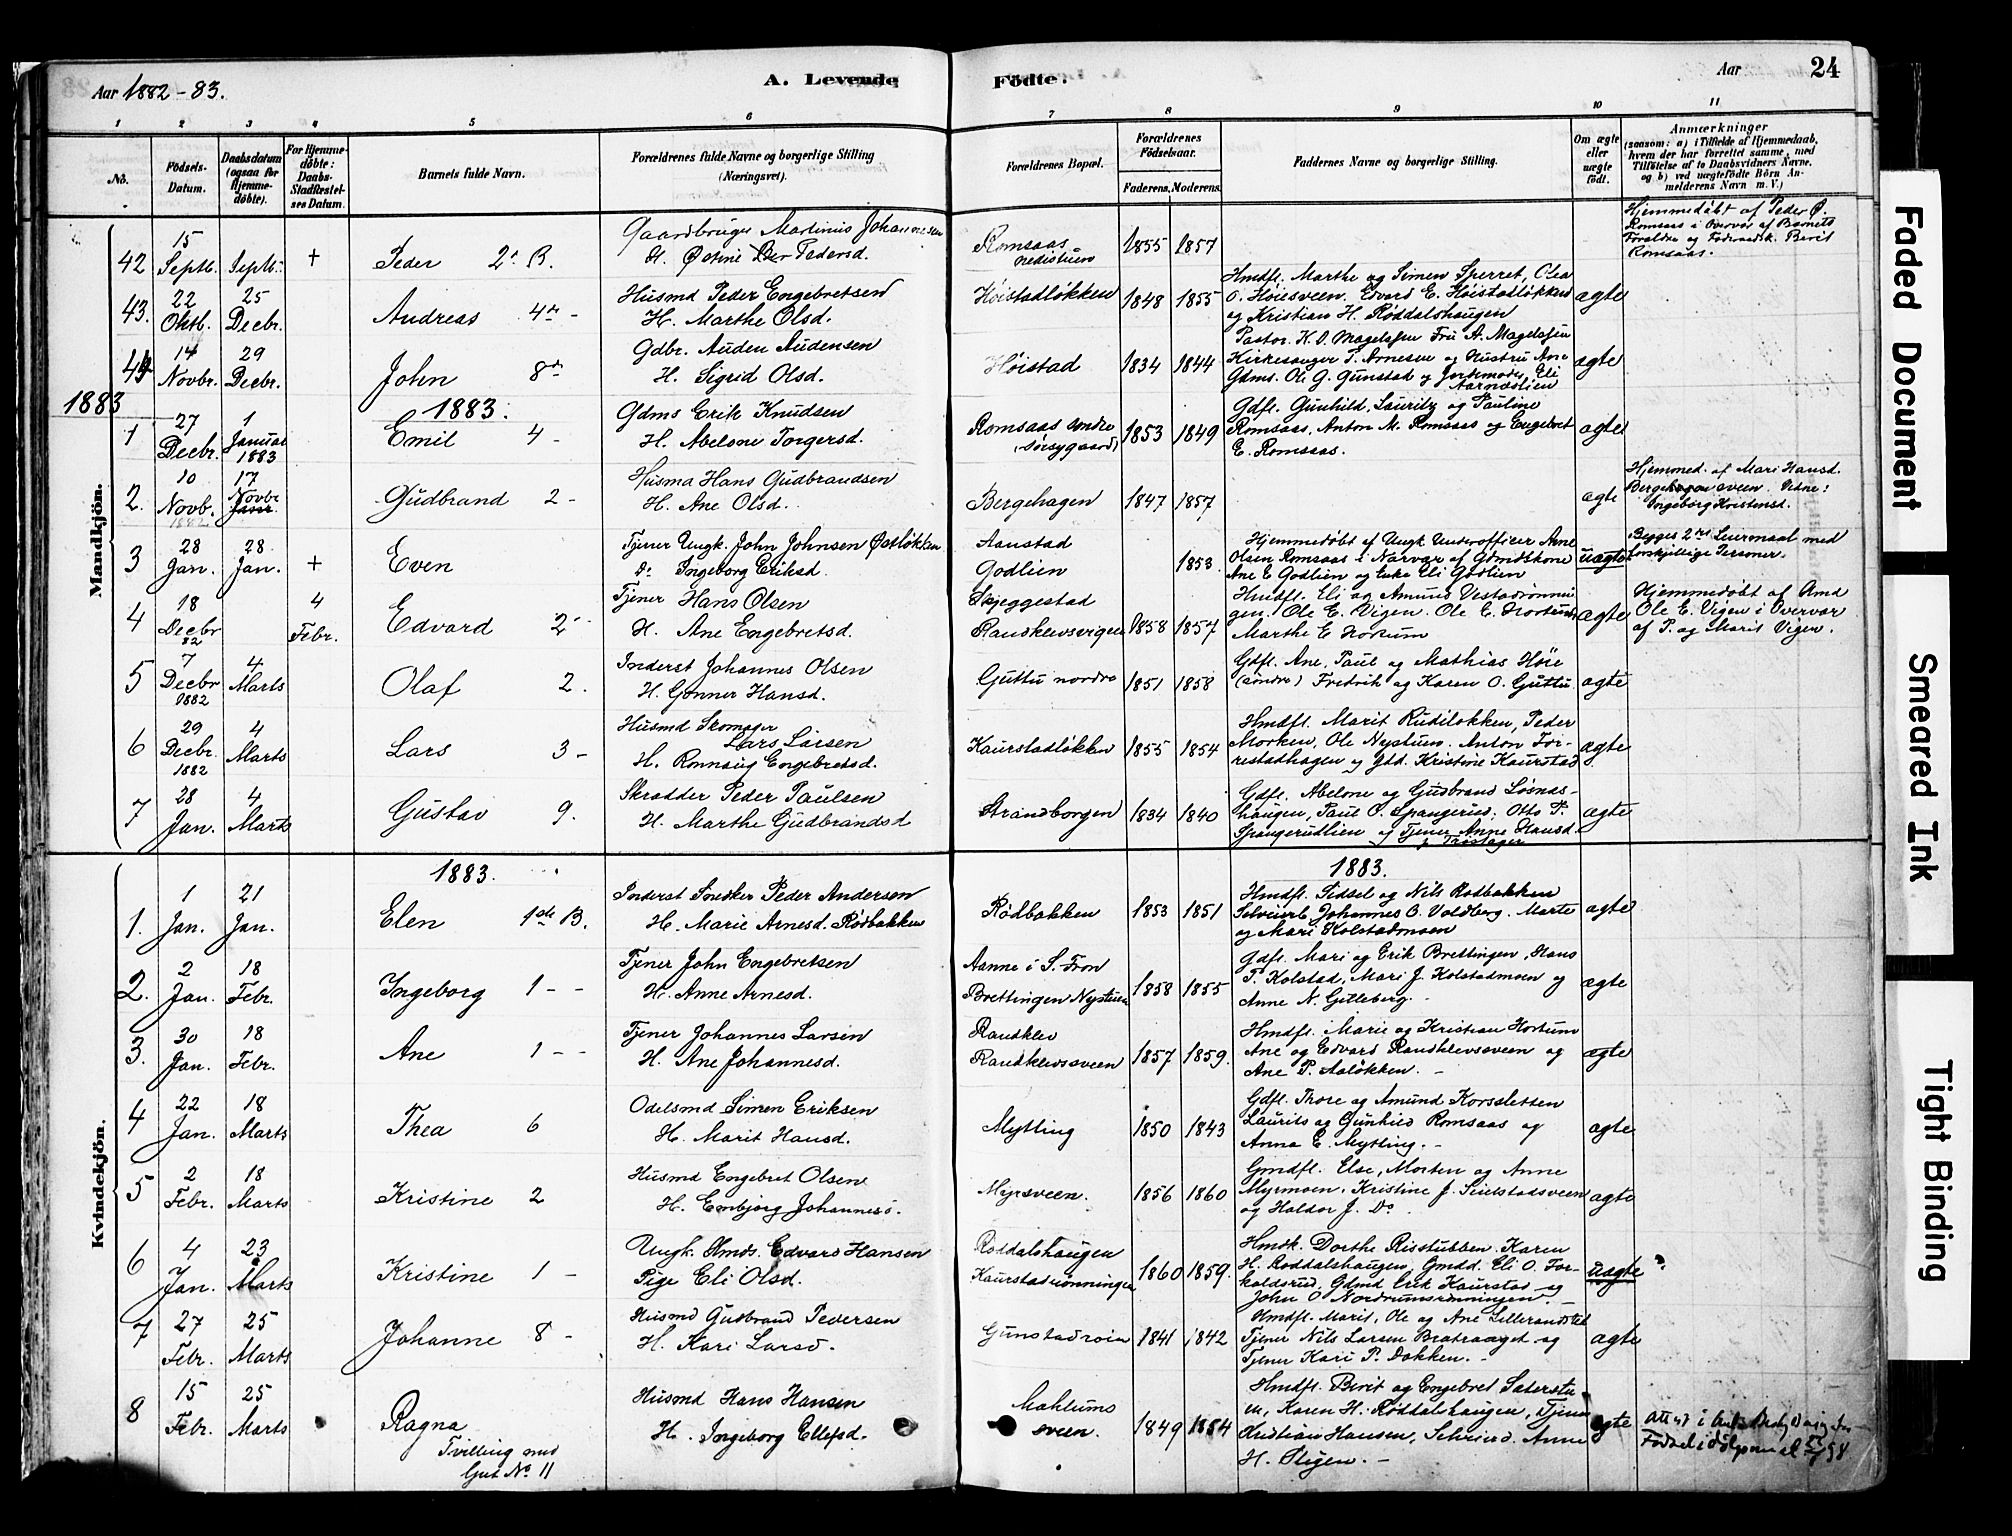 Aar 1882-83.
A. Levende Födte.
Aar 24
1 2 3 4 5 6 7 8 9 10 11
No.
Födsels-Datum.
Daabsdatum (ogsaa for Hjemmedöbte).
For Hjemmedöbte: Daabs-Stadfæstelses Datum.
Barnets fulde Navn.
Forældrenes fulde Navne og borgerlige Stilling (Næringsvei).
Forældrenes Bopæl.
Forældrenes Födselsaar.
Faderens. Moderens.
Faddernes Navne og borgerlige Stilling.
Om ægte eller uægte födt.
Anmærkninger
(saasom: a) i Tilfælde af Hjemmedaab, hvem der har forrettet samme, med Tilföielse af to Daabsvidners Navne, og b) ved uægtefödte Börn Anmelderens Navn m. V.)
Mandkjön.
42 15 Septb. Septb. + Peder 2. B.
Gaardbruger Martinus Johannesen
H. Østine Pedersd.
Romsaas nedistuen 1855 1857
Hjemmedöbt af Peder O. Romsaas i Overvær af Barnets Forældre og Berit Romsaas.
43. 22 Oktb. 25 Decbr. Andreas 4de -
Husmd Peder Engebretsen
H. Marthe Olsd.
Høistadløkken 1848 1855
Hmdfl. Marthe og Simen Sperret, Olea
O. Høiesveen. Edvard E. Høistadløkken
og Kristian H. Røddalshaugen
ægte
44 14 Novbr. 29 Decbr. John 8de
Gdbr. Auden Audensen
H. Sigrid Olsd.
Høistad 1834 1844
Pastor K. O. Magelssen Fru A. Magelssen
Kirkesanger P. Arnesen og Hustru Ane
Gdms. Ole G. Gunstad og Jordemoder Eli
ægte
1883
1883.
1 27 Decbr. 1 Januar 1883 Emil 4 -
Gdms Erik Knudsen
H. Abelone Torgersd.
Romsaas søndre 1853 1849
Gdfl. Gunhild, Lauritz og Pauline
Romsaas, Anton M. Romsaas og Engebret
E. Romsaas.
ægte
2. 10 Novb. 1882 17 Novbr Janr. Gudbrand 2 -
Husmd Hans Gudbrandsen
H. Ane Olsd.
Bergehagen 1847 1857
ægte
Hjemmed. af Mari Hansd.
Vidne:
Ingeborg Kristensd.
3 28 Jan. 28 Jan. + Even
Tjener Ungk. John Johnsen Østløkken
Do Ingeborg Eriksd.
Aanstad
Godlien 1853
Hjemmedöbt af Ungk. Underofficer Arne
Olsen Romsaas i Nærvær af Gdmdskone
Ane E Godlien og Enke Eli Godlien
uægte
Begges 2det Leiermaal med
forskjellige Personer.
4 18 Decbr 82 4 Febr. Edvard 2 -
Tjener Hans Olsen
H. Ane Engebretsd.
Skjeggestad
Randklevsvigen 1858 1857
Hmdfl. Eli og Amund Vestadrønningen.
Ole E. Vigen. Ole E. Hortum
Marthe E Hortum
ægte
Hjemmedöbt af Hmd
Ole E. Vigen i Overvær
af P. og Marit Vigen.
5 7 Decbr 1882 4 Marts Olaf 2.
Inderst Johannes Olsen
H. Gonner Hansd.
Guttu nordre 1851 1858
Gdfl. Ane, Paul og Mathias Høie
(søndre) Fredrik og Karen O. Guttu.
ægte
6 29 Decbr. 1882 4 Marts Lars 3 -
Husmd Skomager
Lars Larsen
H. Rønnaug Engebretsd.
Kaurstadløkken 1855 1854
Hmdfl. Marit Rudiløkken, Peder
Morken, Ole Nystuen. Anton Forrestadhagen
og Gdd. Kristine Kaurstad
ægte
7 28 Jan. 4 Marts Gustav 9.
Skrædder Peder Paulsen
H. Marthe Gudbrandsd
Strandborgen 1834 1840
Gdfl. Abelone og Gudbrand Løsnæshaugen,
Paul O. Spangerud. Otto P.
Spangerudlien og Tjener Anne Hansd.
ægte
Kvindekjön.
1883. 1883.
1. 1 Jan. 21 Jan. Elen 1ste B.
Inderst Snedker Peder Andersen
H. Marie Arnesd. Rødbakken
Rødbakken 1853 1851
Hmdfl. Sidsel og Nils Rødbakken
Selveierb. Johannes O. Voldberg. Marte
og Mari Kolstadmoen
ægte
2. 2 Jan. 18 Febr. Ingeborg 1 - -
Tjener John Engebretsen
H. Anne Arnesd.
Aanne i S. Fron
Brettingen Nystuen 1858 1855
Gdfl. Mari og Erik Brettingen, Hans
P. Kolstad, Mari J. Kolstadmoen og
Anne N. Gilleberg. -
ægte
3. 30 Jan. 18 Febr. Ane 1 - -
Tjener Johannes Larsen
H. Ane Johannesd.
Randklev
Randklevsveen 1857 1859.
Hmdfl. Marie og Kristian Hortum
Ane og Edvard Randklevsveen og
Ane P. Aaløkken. -
ægte
4 22 Jan. 18 Marts Thea 6
Odelsmd Simen Eriksen
H. Marit Hansd.
Mytting 1850 1843
Gdfl. Thore og Amund Korssletten
Laurits og Gunhild Romsaas og
Anna E. Mytting. -
ægte
5 2 Febr. 18 Marts Kristine 2
Husmd Engebret Olsen
H. Embjørg Johannesd.
Myrsveen. 1856 1860
Gmdfl. Else, Morten og Anne
Myrmoen. Kristine J. Seielstadsveen
og Haldor J. Do.
ægte
6 4 Jan. 23 Marts Kristine 1 -
Ungk. Hmds. Edvard Hansen
Pige Eli Olsd.
Røddalshaugen
Kaurstadrønningen 1860 1859.
Hmdk. Dorthe Risstubben. Karen
H. Røddalshaugen, Gmdd. Eli O. Forkalsrud,
Gdmd Erik Kaurstad og
John O Nordrumsrønningen. -
uægte ?
7 27 Febr. 25 Marts Johanne 8 -
Husmd Gudbrand Pedersen
H. Kari Larsd.
Gunstadroen 1841 1842
Hmdfl. Marit, Ole og Ane Lillerandstel
Tjener Nils Larsen Bratvanget og
Tjener Kari P. Dokken. -
ægte
8 15 Febr. 25 Marts Ragna
Tvilling med
Gut No 11
Husmd Hans Hansen
H. Ingeborg Ellefsd.
Mahlumssveen. 1849 1854
Hmdfl. Berit og Engebret Sæterstuen,
Karen H. Røddalshaugen, Tjener
Kristian Hansen, Selveierd. Anne
H. Stigen. -
ægte
Faded Document
Smeared Ink
Tight Binding